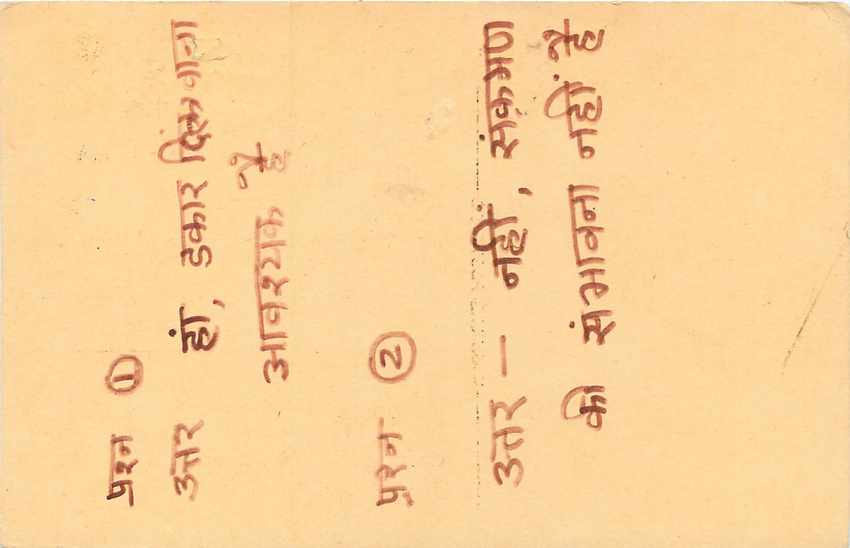 प्रश्न ①
उत्तर हां, डकार दिलवाना
आवश्यक है
प्रश्न ②
उत्तर — नहीं, संक्रमण
की संभावना नहीं है